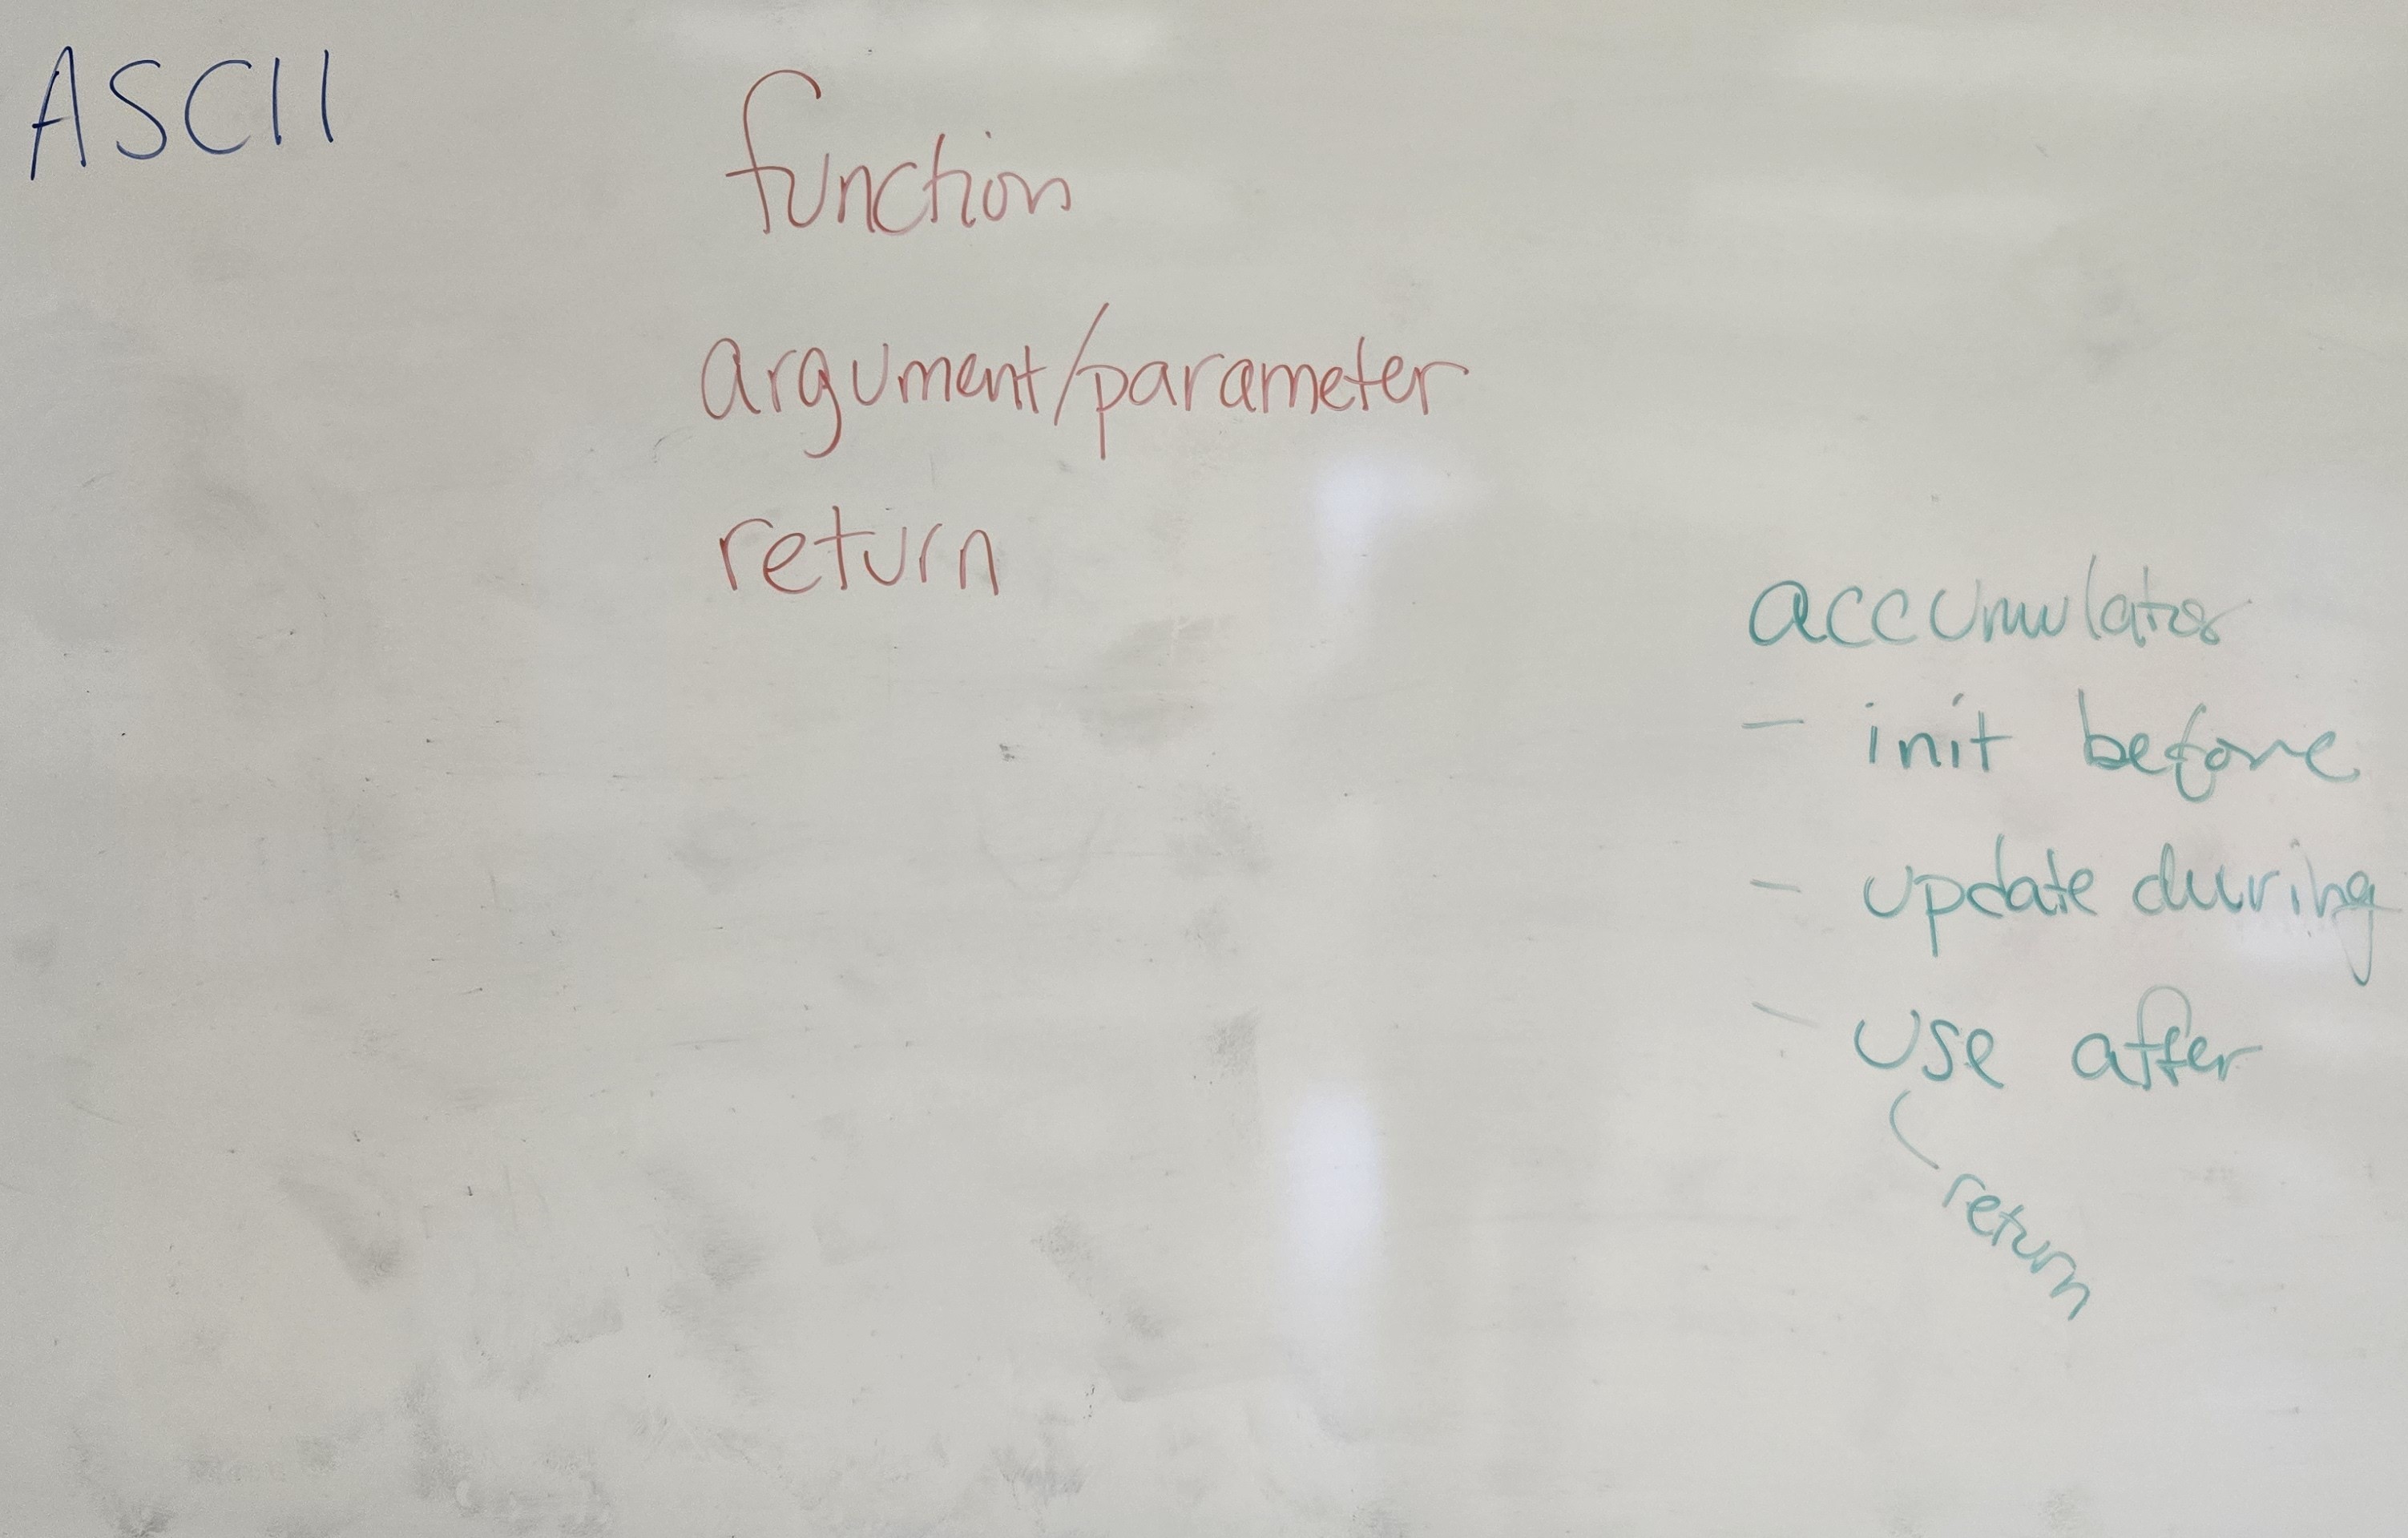 ASCII
function
argument/parameter
return
accumulator
- init before
- update during
- use after
return